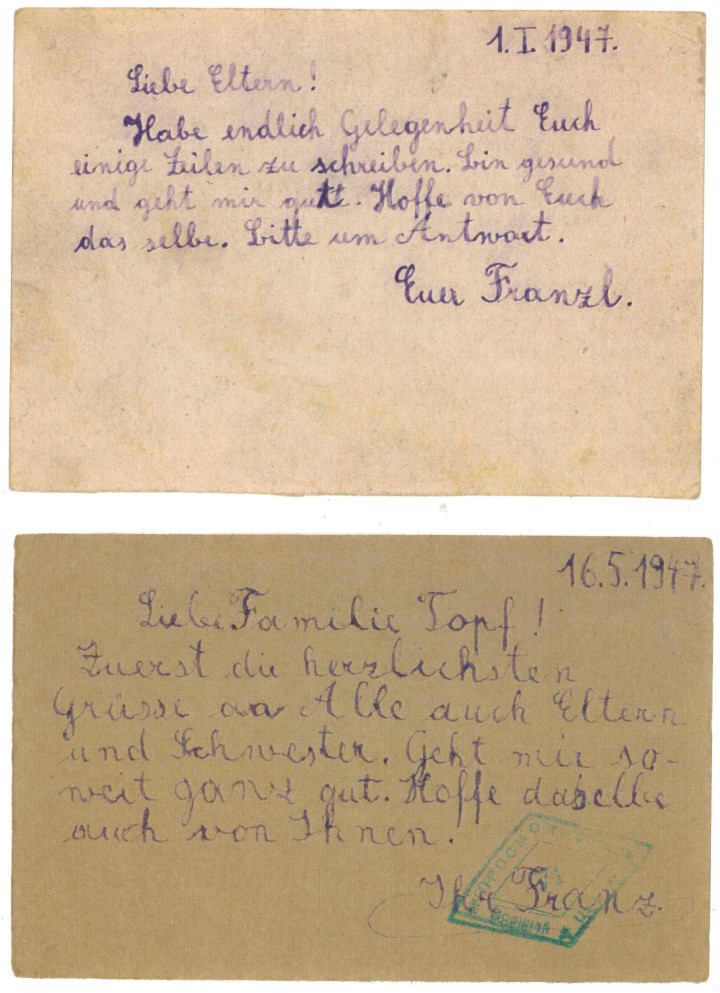 1. I. 1947.
Liebe Eltern!
Habe endlich Gelegenheit Euch
einige Zeilen zu schreiben. Bin gesund
und geht mir gutt. Hoffe von Euch
das selbe. Bitte um Antwort.
Euer Franzl.
16.5.1947.
Liebe Familie Topf!
Zuerst die herzlichsten
Grüsse an Alle auch Eltern
und Schwester. Geht mir so-
weit ganz gut. Hoffe daselbe
auch von Ihnen.
Ihr Franz.